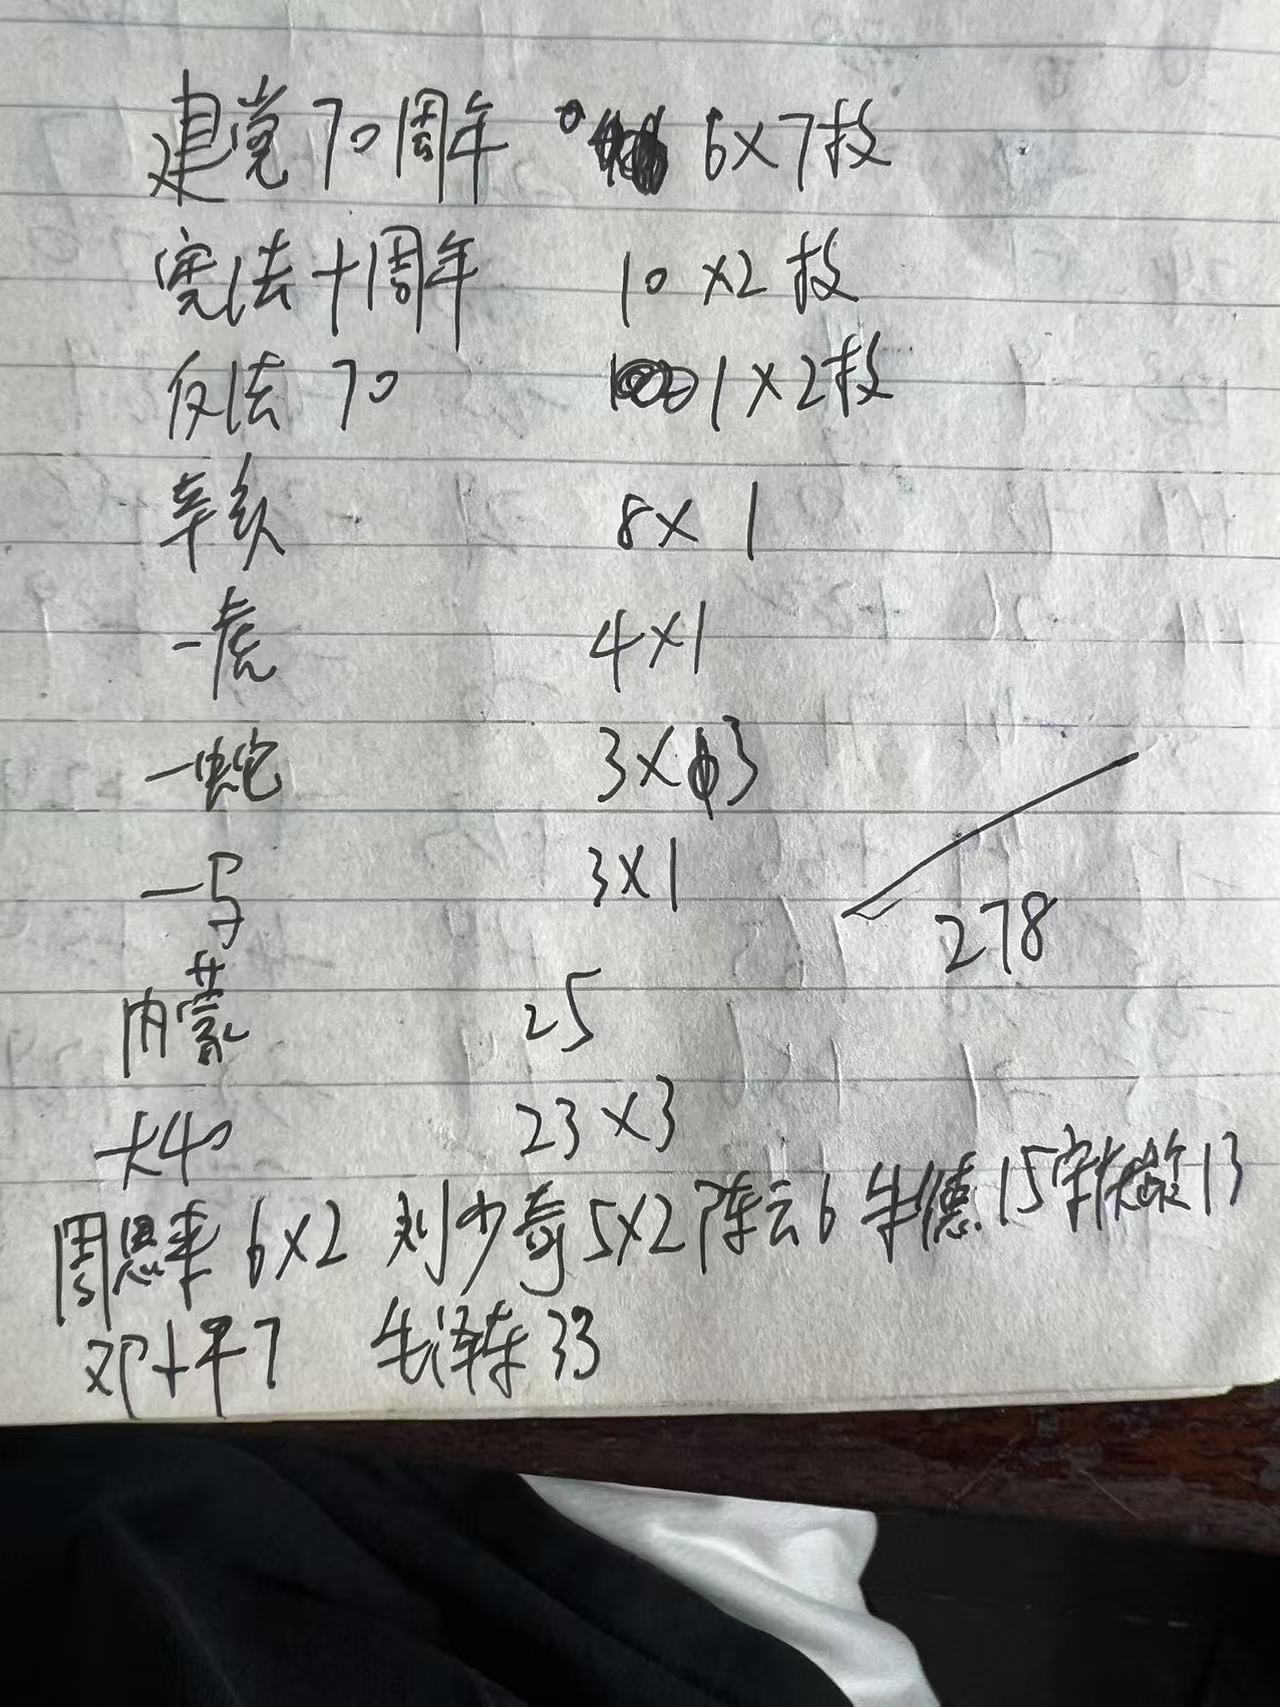 建党70周年 6×7枚
宪法十周年 10×2枚
反法70 1×2枚
辛亥 8×1
一虎 4×1
一蛇 3×3
一马 3×1
278
内蒙 25
大426 23×3
周恩来 6×2 刘少奇 5×2 陈云 6 朱德 15 宋庆龄 13
邓小平 7 毛泽东 33